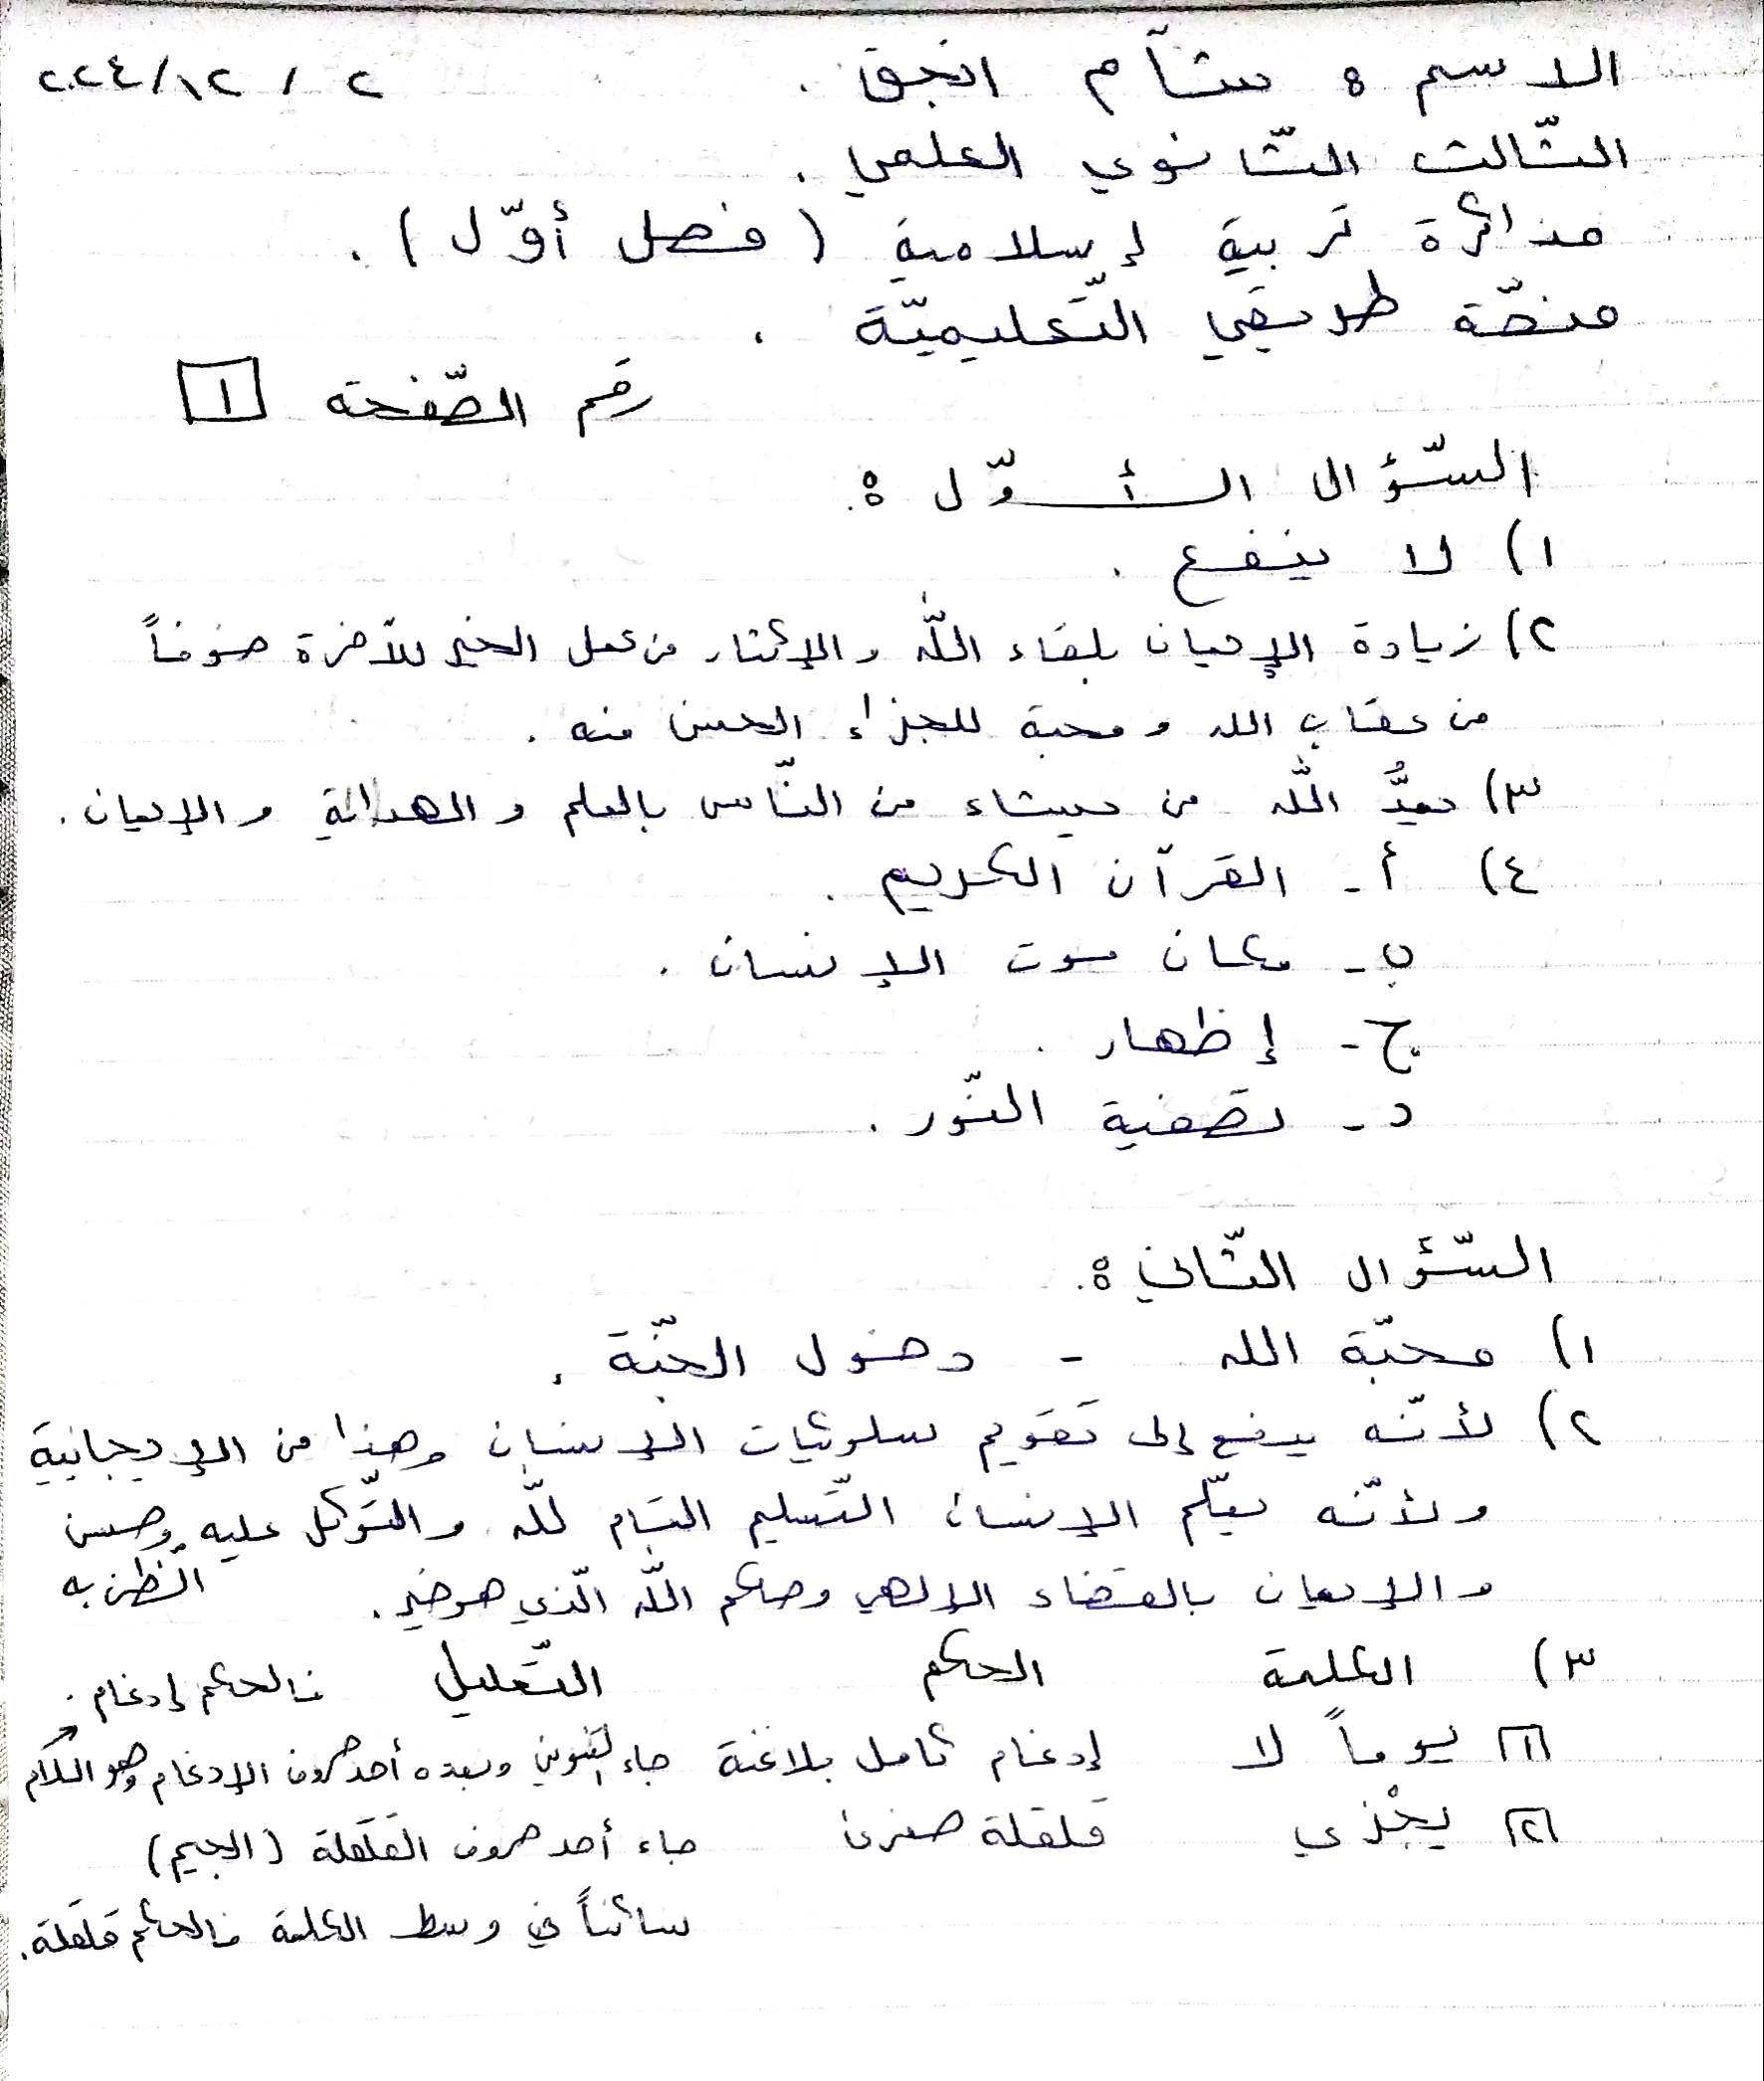 الاسم : شآم انجق . ٢ / ١٢/ ٢٠٢٤
الثّالث الثّانوي العلمي .
مذاكرة تربية إسلامية ( فصل أوّل ) .
منصّة طريقي التّعليميّة .
رقم الصّفحة ١
السّؤال الأوّل :
١) لا ينفع .
٢) زيادة الإيمان بلقاء اللّه والإكثار من عمل الخير للآخرة خوفاً
من عقاب الله ومحبة للجزاء الحسن منه .
٣) يمدُّ اللّه من يشاء من النّاس بالعلم والهداية والإيمان .
٤) أ - القرآن الكريم .
ب - مكان موت الإنسان .
ج - إظهار .
د - تصفية النّور .
السّؤال الثّاني :
١) محبّة الله - دخول الجنّة .
٢) لأنّه يدفع إلى تقويم سلوكيات الإنسان وهذا من الإيجابية
ولأنّه يعلّم الإنسان التّسليم التام للّه والتّوكل عليه وحسن
الظّن به
والإيمان بالقضاء الإلهي وحكم اللّه الّذي هو خير .
٣) الكلمة الحكم التّعليل فالحكم إدغام .
١ يوماً لا إدغام كامل بلاغنة جاء التنوين وبعده أحد حروف الإدغام وهو اللام
٢ يجْزي قلقلة صغرى جاء أحد حروف القلقلة (الجيم)
ساكناً في وسط الكلمة فالحكم قلقلة .